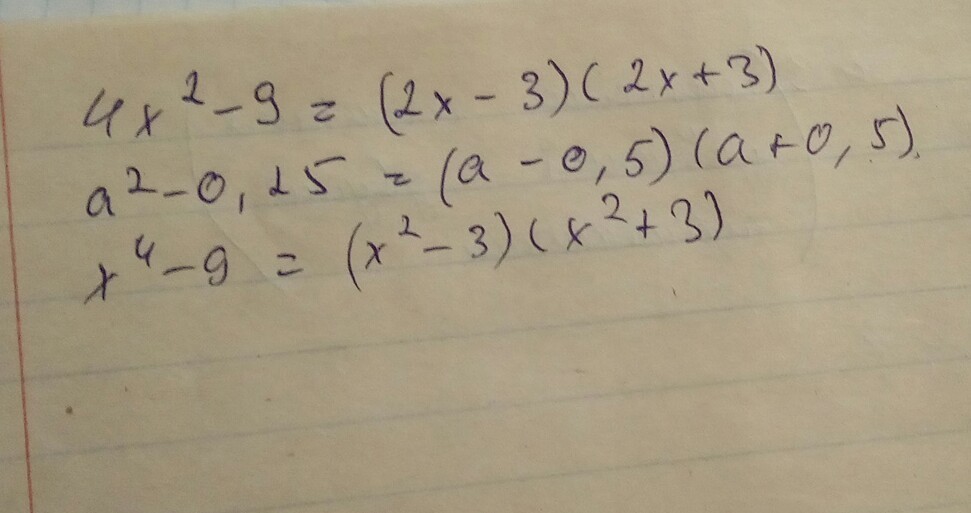 4x² - 9 = (2x - 3)(2x + 3)
a² - 0,25 = (a - 0,5)(a + 0,5).
x⁴ - 9 = (x² - 3)(x² + 3)